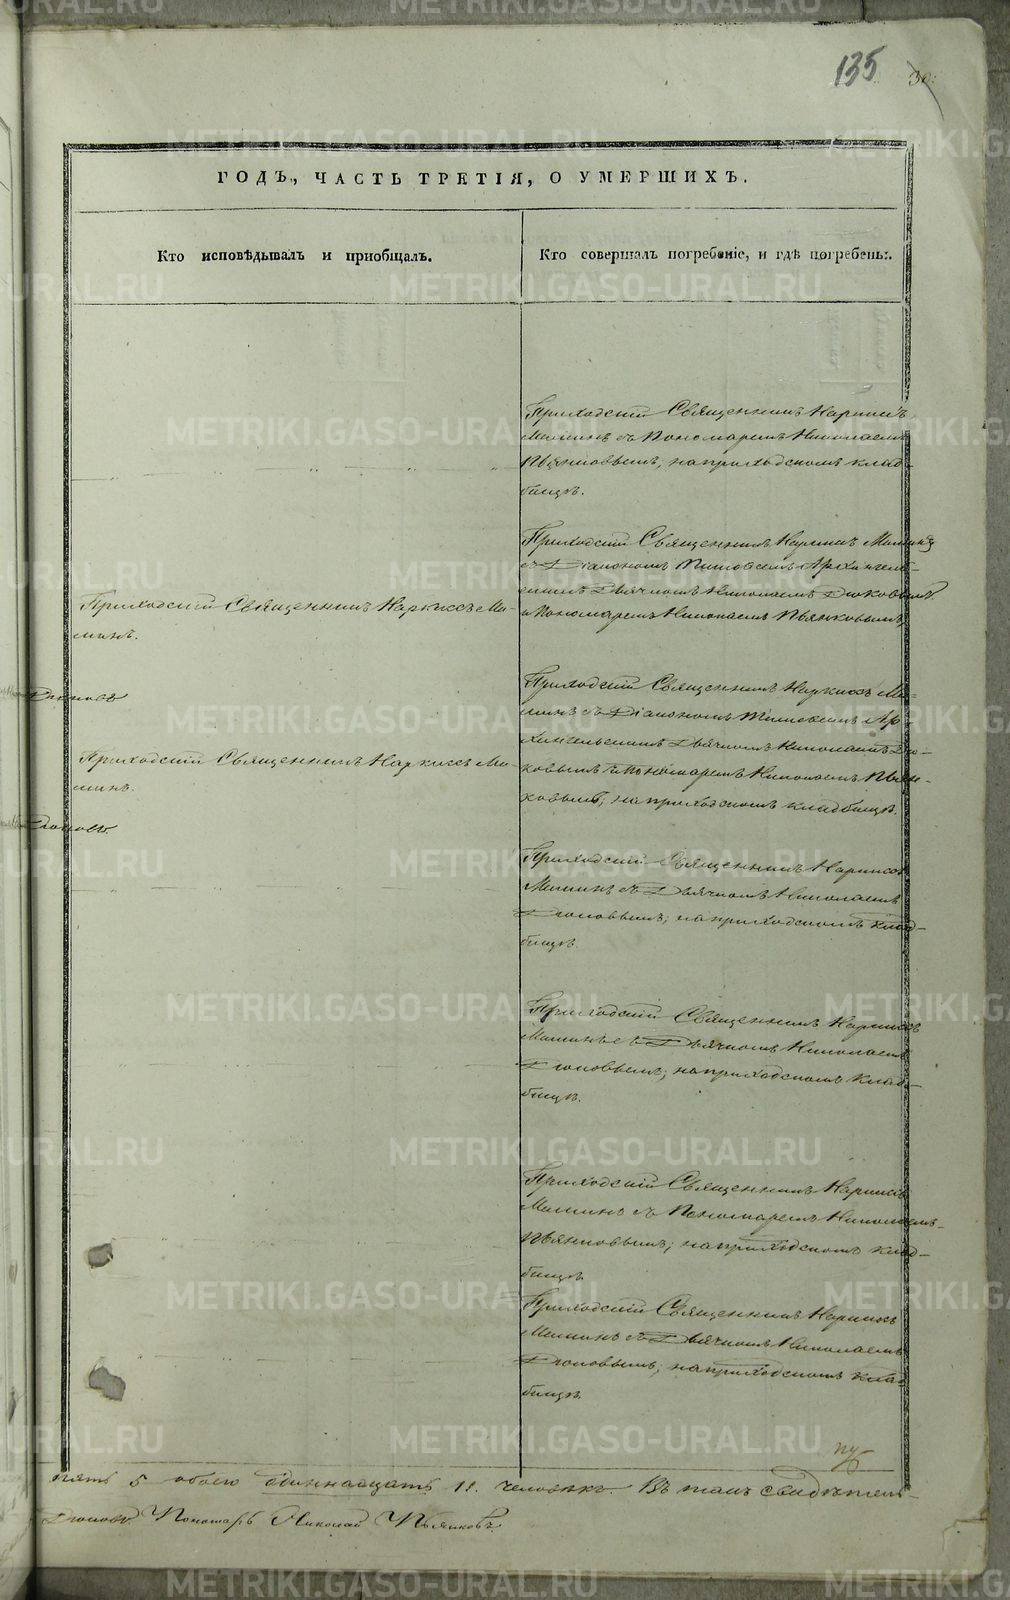 135
30.
ГОДЪ, ЧАСТЬ ТРЕТІЯ, О УМЕРШИХЪ.
Кто исповѣдывалъ и пріобщалъ.
Кто совершалъ погребеніе, и гдѣ погребены.
Приходскій Священникъ Наркисъ
Маминъ съ Пономаремъ Николаемъ
Пьянковымъ, на приходскомъ клад-
бищѣ.
Приходскій Священникъ Наркисъ Маминъ
съ Діакономъ Архангель-
скимъ Дьячкомъ Николаемъ
и Пономаремъ Николаемъ Пьянковымъ,
Приходскій Священникъ Наркисъ Ма-
минъ.
Приходскій Священникъ Наркисъ Ма-
минъ съ Діакономъ Ар-
хангельскимъ Дьячкомъ Николаемъ
ковымъ и Пономаремъ Николаемъ Пьян-
ковымъ, на приходскомъ кладбищѣ.
Приходскій Священникъ Наркисъ Ма-
минъ.
Приходскій Священникъ Наркисъ
Маминъ съ Дьячкомъ Николаемъ
на приходскомъ клад-
бищѣ.
Приходскій Священникъ Наркисъ
Маминъ съ Дьячкомъ Николаемъ
на приходскомъ клад-
бищѣ.
Приходскій Священникъ Наркисъ
Маминъ съ Пономаремъ Николаемъ
Пьянковымъ, на приходскомъ клад-
бищѣ
Приходскій Священникъ Наркисъ
Маминъ съ Дьячкомъ Николаемъ
на приходскомъ клад-
бищѣ.
пять 5 обоего одиннадцать 11. человѣкъ. Въ томъ свидѣтель-
Пономарь Николай Пьянковъ
METRIKI.GASO-URAL.RU